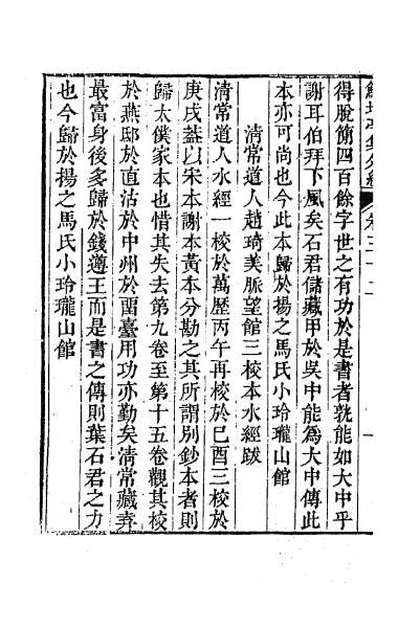 得脫簡四百餘字世之有功於是書者孰能如大中乎
謝耳伯拜下風矣石君儲藏甲於吳中能為大中傳此
本亦可尚也今此本歸於揚之馬氏小玲瓏山館
清常道人趙琦美脈望館三校本水經跋
清常道人水經一校於萬歷丙午再校於己酉三校於
庚戌葢以宋本謝本黃本分勘之其所謂別鈔本者則
歸太僕家本也惜其失去第九卷至第十五卷觀其校
於燕邸於直沽於中州於留臺用功亦勤矣清常藏弆
最富身後多歸於錢遵王而是書之傳則葉石君之力
也今歸於揚之馬氏小玲瓏山館